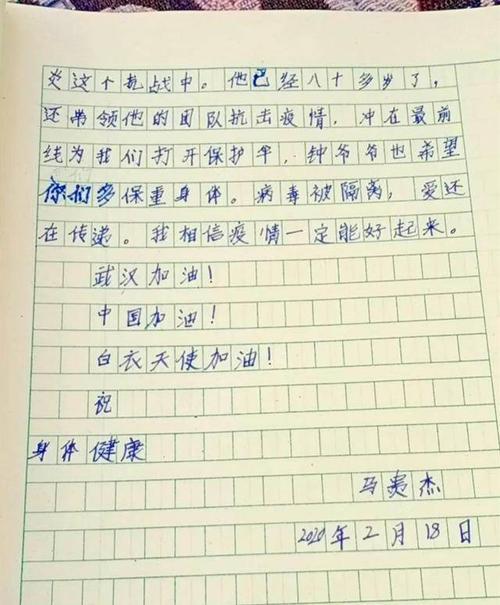 炎这个抗战中。他已经八十多岁了，
还带领他的团队抗击疫情，冲在最前
线为我们打开保护伞，钟爷爷也希望
你们多保重身体。病毒被隔离，爱还
在传递。我相信疫情一定能好起来。
武汉加油！
中国加油！
白衣天使加油！
祝
身体健康
马奥杰
2020年2月18日